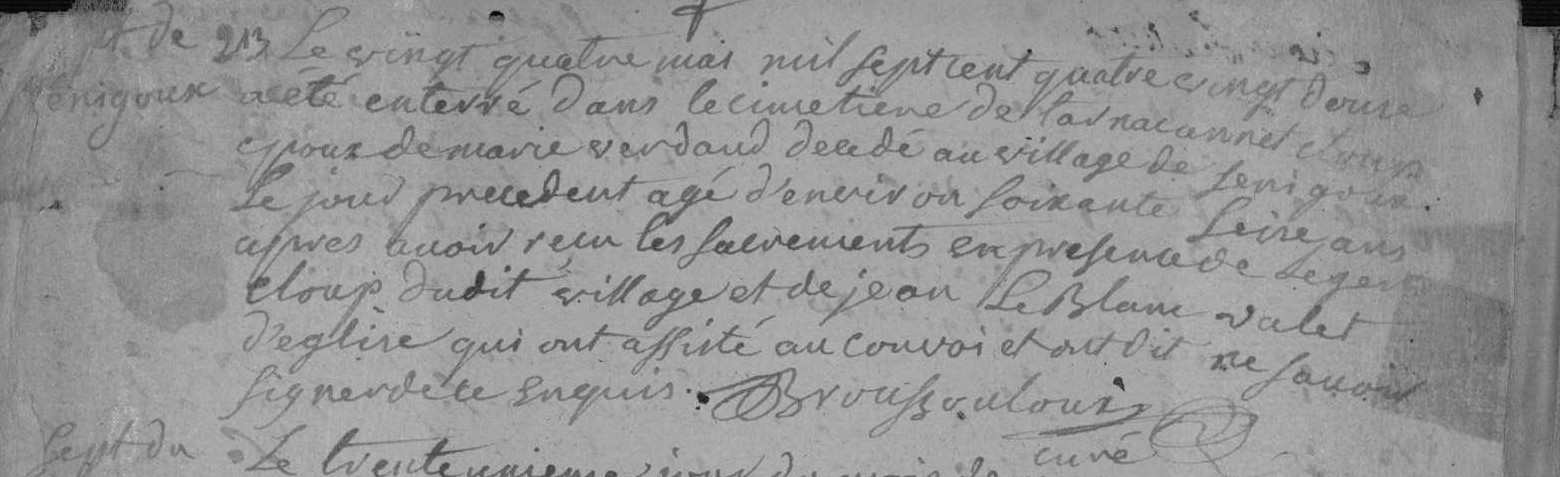 de 213 Le vingt quatre mai mil sept cent quatre vingt douse
Senigoux a été enterré dans le cimetiere de tarnac annet cloup
epoux de marie verdaud decedé au village de senigoux
Le jour precedent agé d'environ soixante seise ans
apres avoir reçu les sacrements en presence de Leger
cloup dudit village et de jean Le Blanc valet
d'eglise qui ont assisté au convoi et ont dit ne savoir
signer de ce enquis. Broussouloux
curé
Sept du Le trente unieme jour du mois de